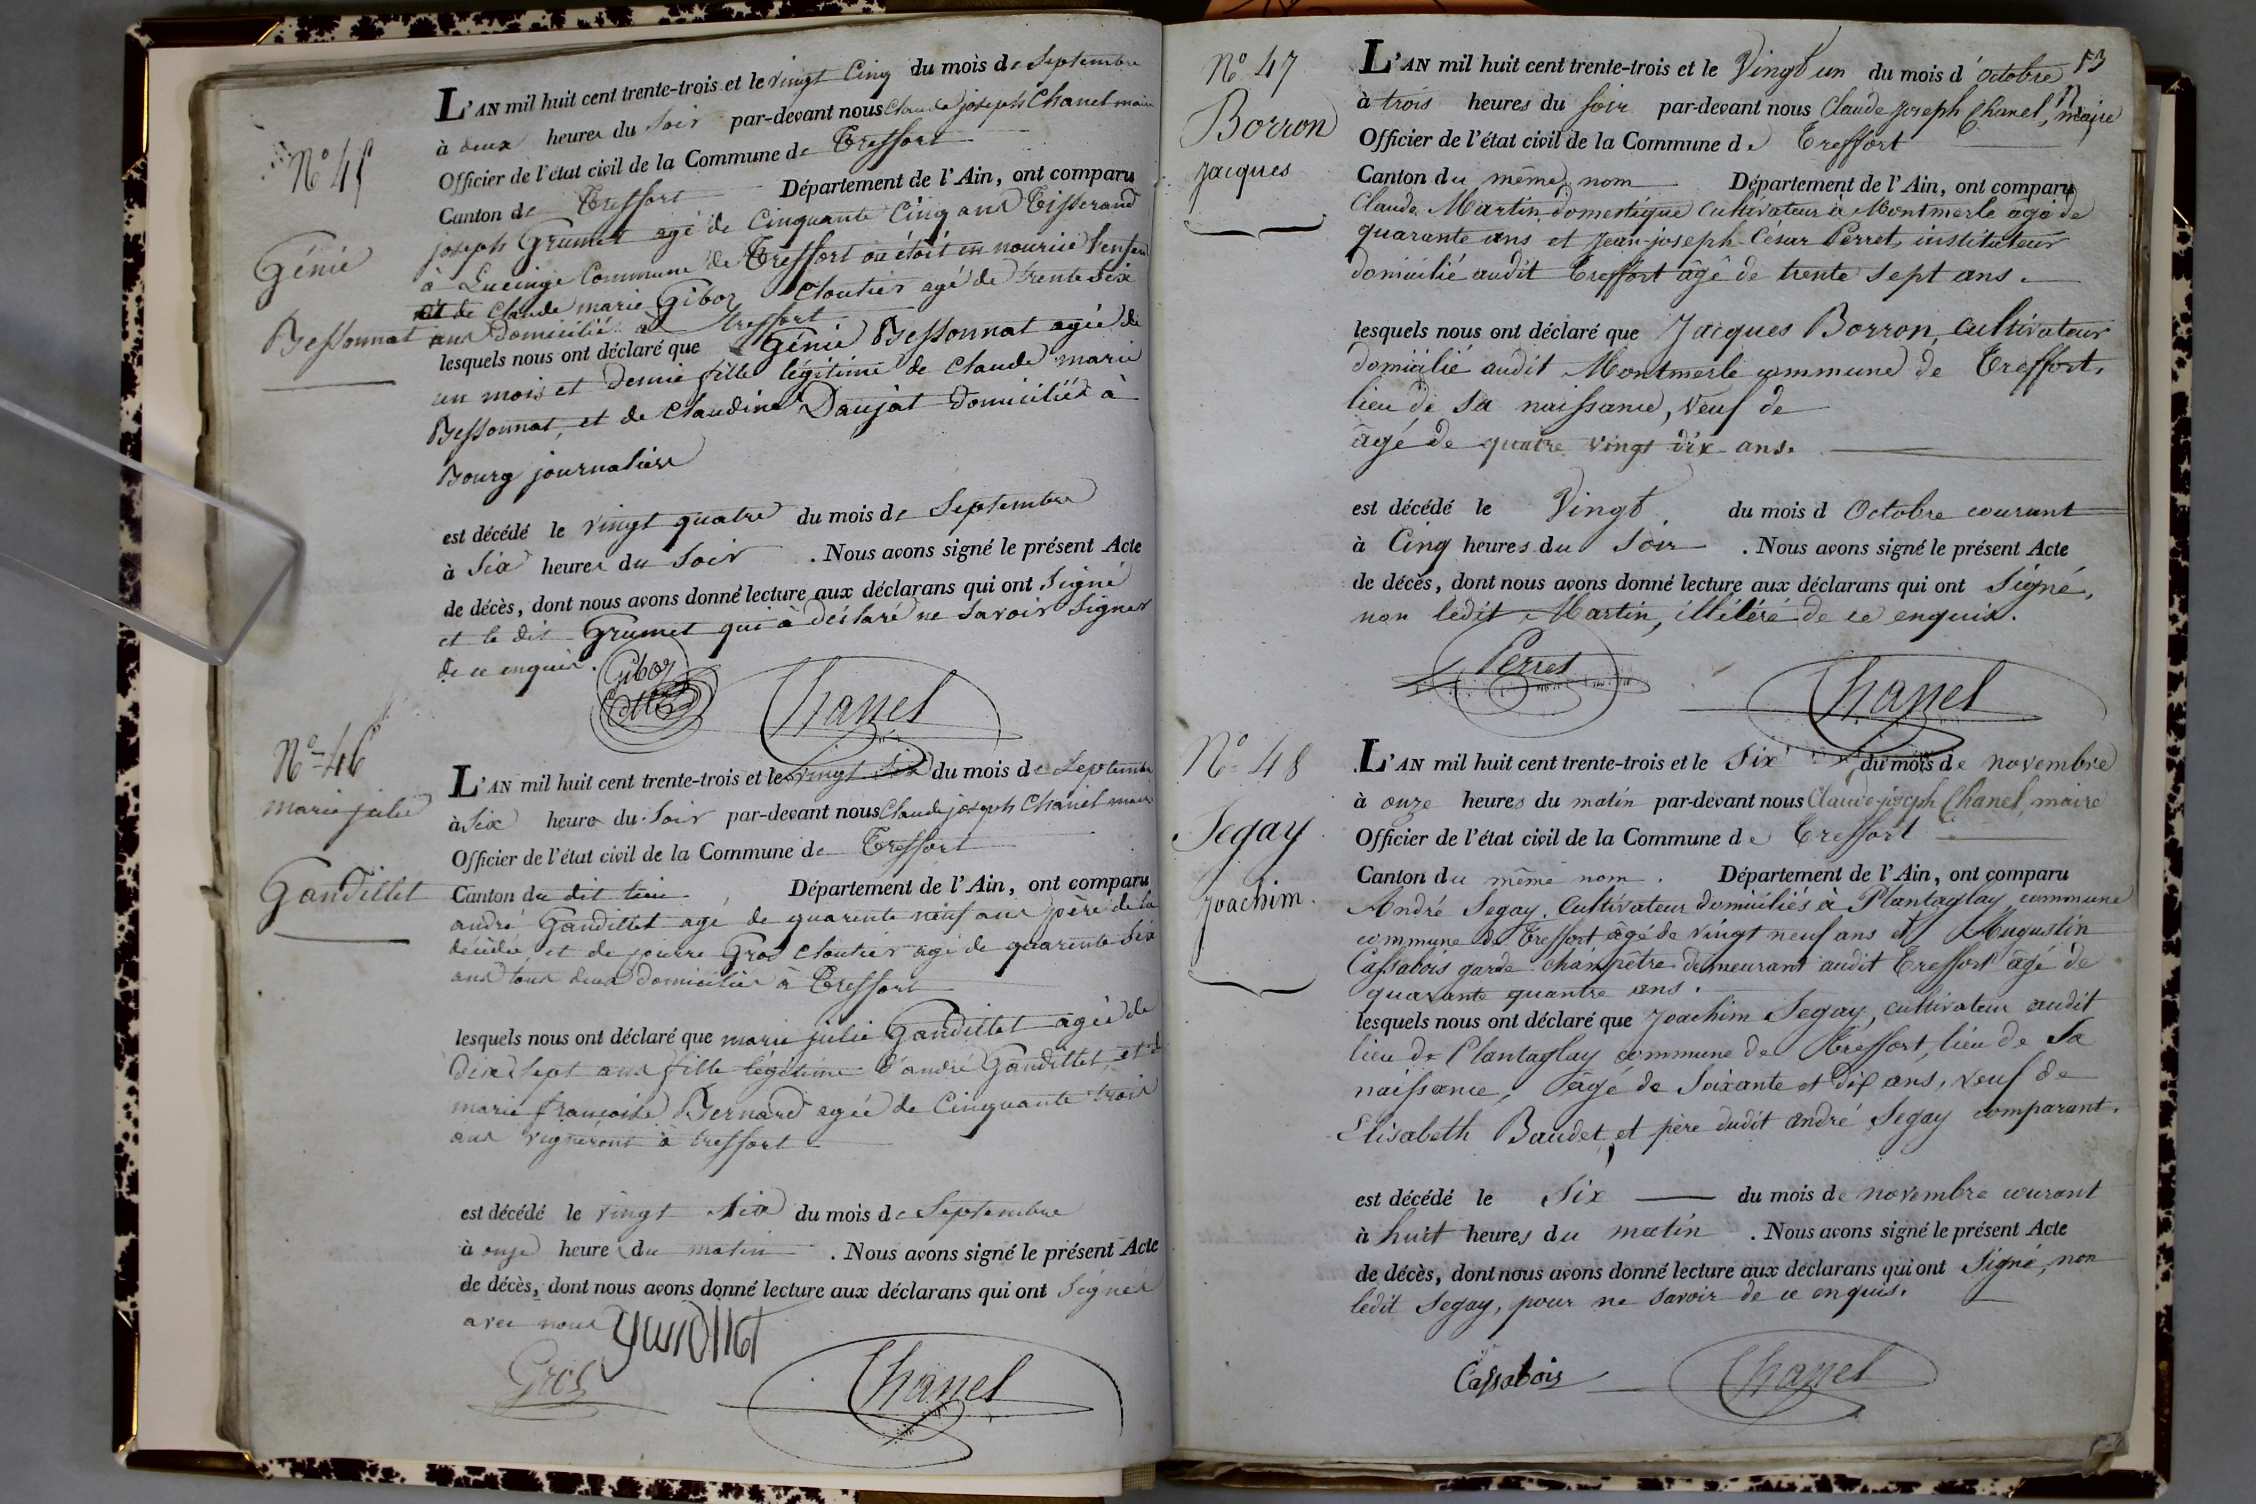 N° 45
Génie
Bessonnat
L'AN mil huit cent trente-trois et le vingt Cinq du mois de Septembre
à deux heures du Soir par-devant nous Claude joseph Chanel maire
Officier de l'état civil de la Commune de Treffort
Canton de Treffort Département de l'Ain, ont comparu
joseph Grumet agé de Cinquante Cinq ans Tisserand
à Lucinge Commune de Treffort où étoit en nourice l'enfant
et de Claude marie Giboz Cloutier agé de trente Six
ans domicilié à treffort
lesquels nous ont déclaré que Génie Bessonnat agée de
un mois et demie fille légitime de Claude marie
Bessonnat, et de Claudine Daujat domiciliés à
Bourg journalière
est décédé le vingt quatre du mois de Septembre
à Six heures du Soir . Nous avons signé le présent Acte
de décès, dont nous avons donné lecture aux déclarans qui ont Signé
et le dit Grumet qui à déclaré ne Savoir Signer
de ce enquis.
Giboz
Chanel
N° 46
marie julie
Gandillet
L'AN mil huit cent trente-trois et le vingt Six du mois de Septembre
à Six heures du Soir par-devant nous Claude joseph Chanel maire
Officier de l'état civil de la Commune de Treffort
Canton du dit lieu Département de l'Ain, ont comparu
andré Gandillet agé de quarente neuf ans père de la
décédée et de pierre Gros Cloutier agé de quarente Six
ans tous deux domicilies à Treffort
lesquels nous ont déclaré que marie julie Gandillet agée de
dix Sept ans fille légitime d'andré Gandillet, et de
marie françoise Bernard agée de Cinquante trois
ans vigneront à treffort
est décédé le vingt Six du mois de Septembre
à onze heures du matin . Nous avons signé le présent Acte
de décès, dont nous avons donné lecture aux déclarans qui ont Signés
avec nous gandillet
Gros
Chanel
53
N° 47
Borron
Jacques
L'AN mil huit cent trente-trois et le Vingt un du mois d'octobre
à trois heures du soir par-devant nous Claude joseph Chanel, maire
Officier de l'état civil de la Commune de Treffort
Canton du même nom Département de l'Ain, ont comparu
Claude Martin domestique cultivateur à Montmerle âgé de
quarante ans et Jean-joseph-César Perret, instituteur
domicilié audit Treffort âgé de trente sept ans.
lesquels nous ont déclaré que Jacques Borron, cultivateur
domicilié audit Montmerle commune de Treffort,
lieu de sa naissance, veuf de
âgé de quatre vingt dix ans.
est décédé le Vingt du mois d Octobre courant
à Cinq heures du Soir . Nous avons signé le présent Acte
de décès, dont nous avons donné lecture aux déclarans qui ont Signé,
non ledit Martin, illétéré de ce enquis.
Perret
Chanel
N° 48
Segay
Joachim.
L'AN mil huit cent trente-trois et le Six du mois de novembre
à onze heures du matin par-devant nous Claude-joseph Chanel, maire
Officier de l'état civil de la Commune de Treffort
Canton du même nom . Département de l'Ain, ont comparu
André Segay, cultivateur domiciliés à Plantaglay commune
commune de Treffort âgé de vingt neuf ans et Augustin
Cassabois garde-champêtre demeurant audit Treffort âgé de
quarante quantre ans.
lesquels nous ont déclaré que Joachim Segay, cultivateur audit
lieu de Plantaglay commune de Treffort, lieu de sa
naissance, âgé de Soixante et dix ans, veuf de
Elisabeth Baudet, et père dudit andré Segay comparant.
est décédé le Six du mois de novembre courant
à huit heures du matin . Nous avons signé le présent Acte
de décès, dont nous avons donné lecture aux déclarans qui ont Signé, non
ledit Segay, pour ne savoir de ce enquis.
Cassabois
Chanel